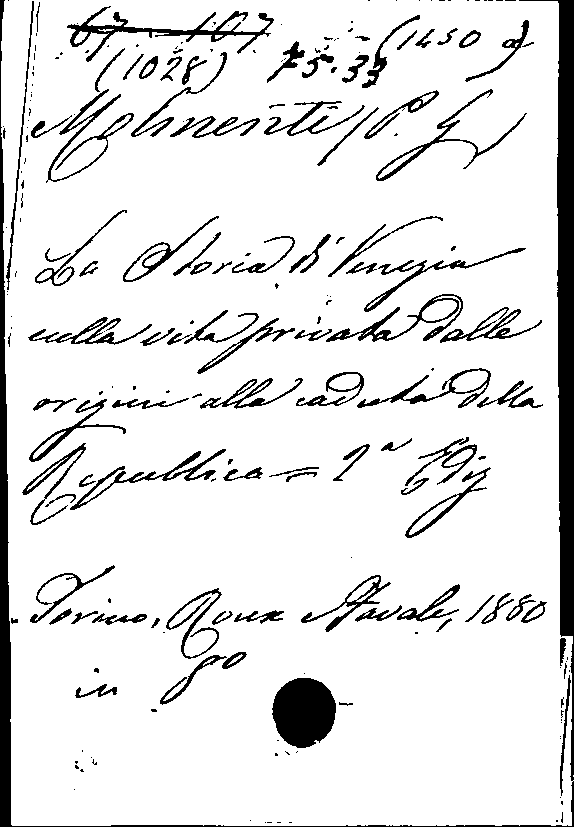 67 - 107 (1450 a)
(1028) 75.33
Molmenti, P. G.
La Storia di Venezia
nella vita privata dalle
origini alla caduta della
Republica = 2ª Ediz
Torino, Roux e Favale, 1880
in 8º